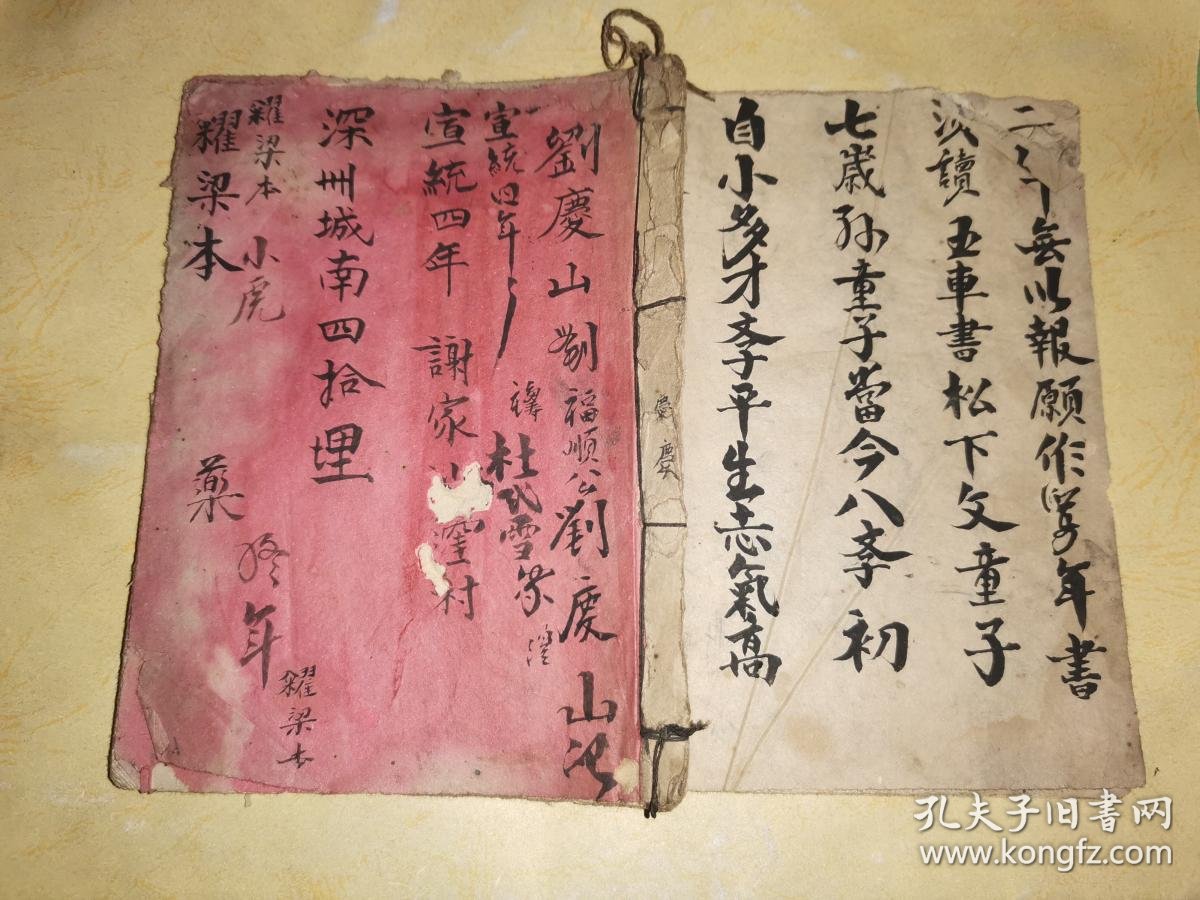 無以報願作學年書
讀五車書松下文童子
七歲孫童子當今八李初
自小多才李平生志氣高
慶
劉慶山劉福順公劉慶山
宣統四年
杜 雪
宣統四年 謝家 村
深州城南四拾埋
糶梁本 小虎
糶梁本
藥
年
糶梁本
孔夫子旧书网
www.kongfz.com